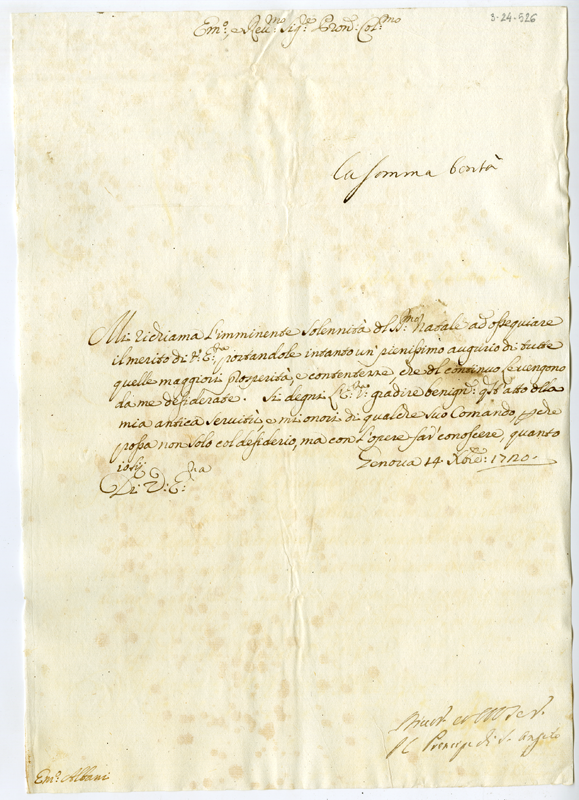 3-24-526
Em.º, e Rev.mo Sig.re Pron: Col.mo
la somma bontà
Mi richiama l'imminente solennità del S.mo Natale ad ossequiare
il merito di V: Em:za, portandole intanto un pienissimo augurio di tutte
quelle maggiori prosperità, e contentezze, che di continuo le vengono
da me desiderate. Si degni l'E: V: gradire benign: q.st'atto della
mia antica servitù, e mi onori di qualche suo comando, perche
possa non solo col desiderio, ma con l'opere far conoscere, quanto
io sij
Di: V: E:za
Genova 14. Xbre: 1720.
P C Principe di S. Angelo
Em.º Albani